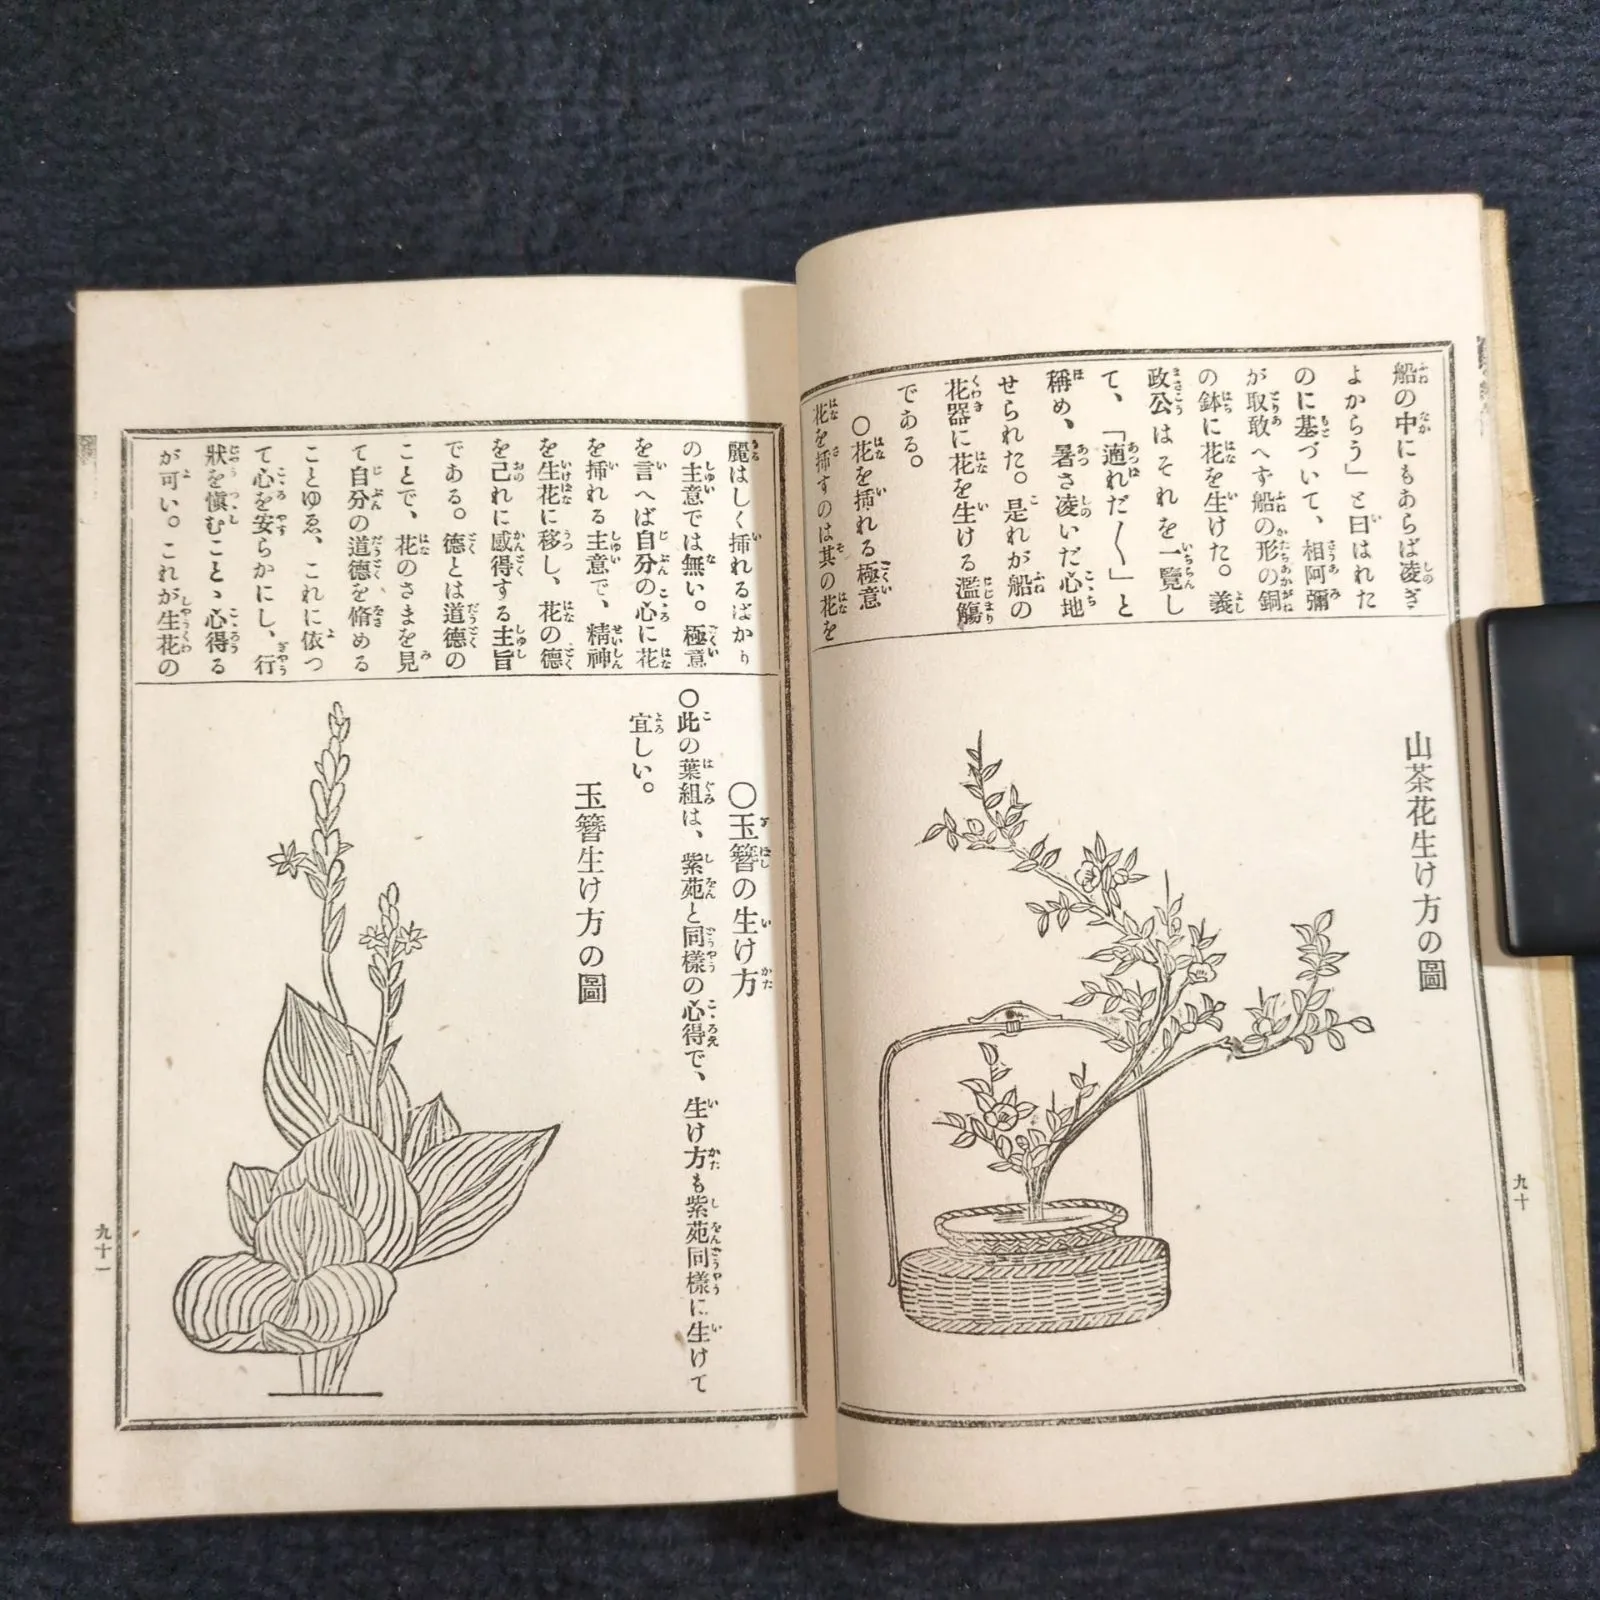 船の中にもあらば凌ぎ
よからう」と曰はれた
のに基づいて、相阿彌
が取敢へす船の形の銅
の鉢に花を生けた。義
政公はそれを一覽し
て、「適れだ〱」と
稱め、暑さ凌いだ心地
せられた。是れが船の
花器に花を生ける濫觴
である。
〇花を挿れる極意
花を挿すのは其の花を
山茶花生け方の圖
九十
麗はしく挿れるばかり
の主意では無い。極意
を言へば自分の心に花
を挿れる主意で、精神
を生花に移し、花の德
を己れに感得する主旨
である。德とは道德の
ことで、花のさまを見
て自分の道德を脩める
ことゆゑ、これに依つ
て心を安らかにし、行
狀を愼むこと、心得る
が可い。これが生花の
〇玉簪の生け方
〇此の葉組は、紫苑と同樣の心得で、生け方も紫苑同樣に生けて
宜しい。
玉簪生け方の圖
九十一